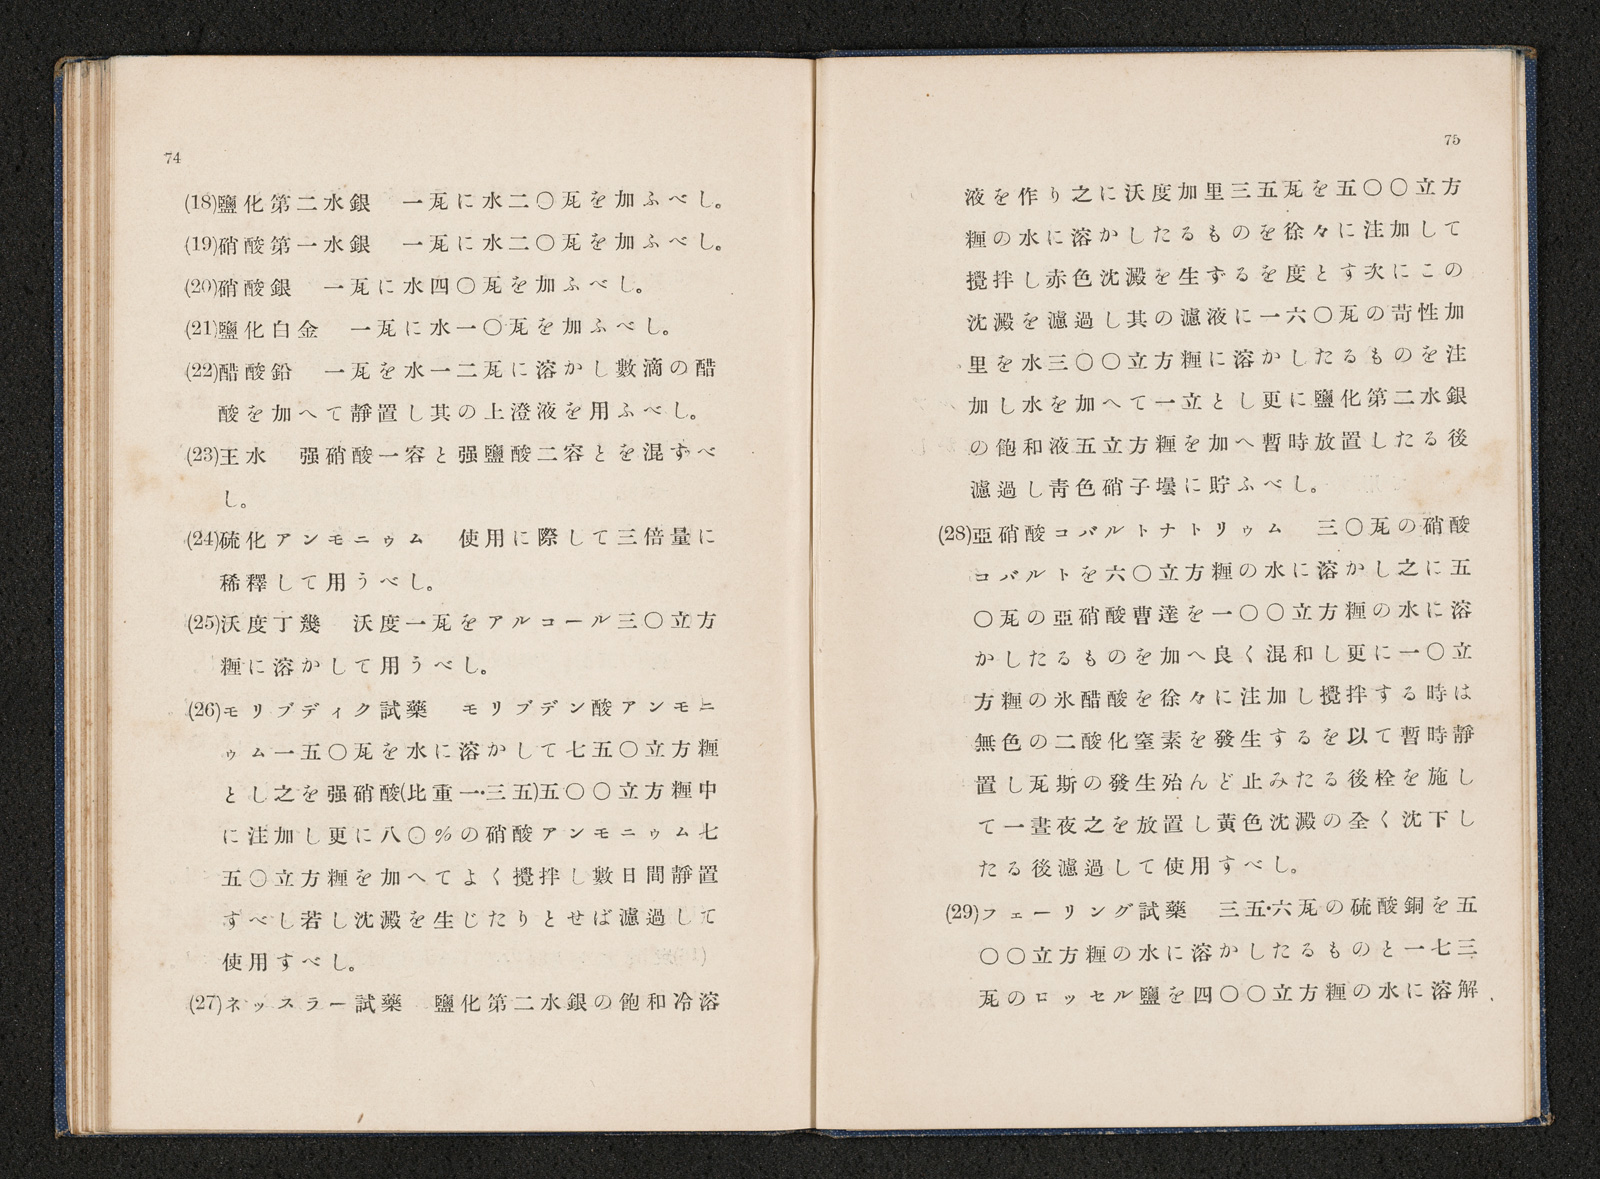 74
(18)鹽化第二水銀　一瓦に水二〇瓦を加ふべし。
(19)硝酸第一水銀　一瓦に水二〇瓦を加ふべし。
(20)硝酸銀　一瓦に水四〇瓦を加ふべし。
(21)鹽化白金　一瓦に水一〇瓦を加ふべし。
(22)醋酸鉛　一瓦を水一二瓦に溶かし數滴の醋
酸を加へて靜置し其の上澄液を用ふべし。
(23)王水　强硝酸一容と强鹽酸二容とを混ずべ
し。
(24)硫化アンモニゥム　使用に際して三倍量に
稀釋して用うべし。
(25)沃度丁幾　沃度一瓦をアルコール三〇立方
糎に溶かして用うべし。
(26)モリブディク試藥　モリブデン酸アンモニ
ゥム一五〇瓦を水に溶かして七五〇立方糎
とし之を强硝酸(比重一·三五)五〇〇立方糎中
に注加し更に八〇％の硝酸アンモニゥム七
五〇立方糎を加へてよく攪拌し數日間靜置
すべし若し沈澱を生じたりとせば濾過して
使用すべし。
(27)ネッスラー試藥　鹽化第二水銀の飽和冷溶
75
液を作り之に沃度加里三五瓦を五〇〇立方
糎の水に溶かしたるものを徐々に注加して
攪拌し赤色沈澱を生ずるを度とす次にこの
沈澱を濾過し其の濾液に一六〇瓦の苛性加
里を水三〇〇立方糎に溶かしたるものを注
加し水を加へて一立とし更に鹽化第二水銀
の飽和液五立方糎を加へ暫時放置したる後
濾過し靑色硝子壜に貯ふべし。
(28)亞硝酸コバルトナトリゥム　三〇瓦の硝酸
コバルトを六〇立方糎の水に溶かし之に五
〇瓦の亞硝酸曹達を一〇〇立方糎の水に溶
かしたるものを加へ良く混和し更に一〇立
方糎の氷醋酸を徐々に注加し攪拌する時は
無色の二酸化窒素を發生するを以て暫時靜
置し瓦斯の發生殆んど止みたる後栓を施し
て一晝夜之を放置し黃色沈澱の全く沈下し
たる後濾過して使用すべし。
(29)フェーリング試藥　三五·六瓦の硫酸銅を五
〇〇立方糎の水に溶かしたるものと一七三
瓦のロッセル鹽を四〇〇立方糎の水に溶解